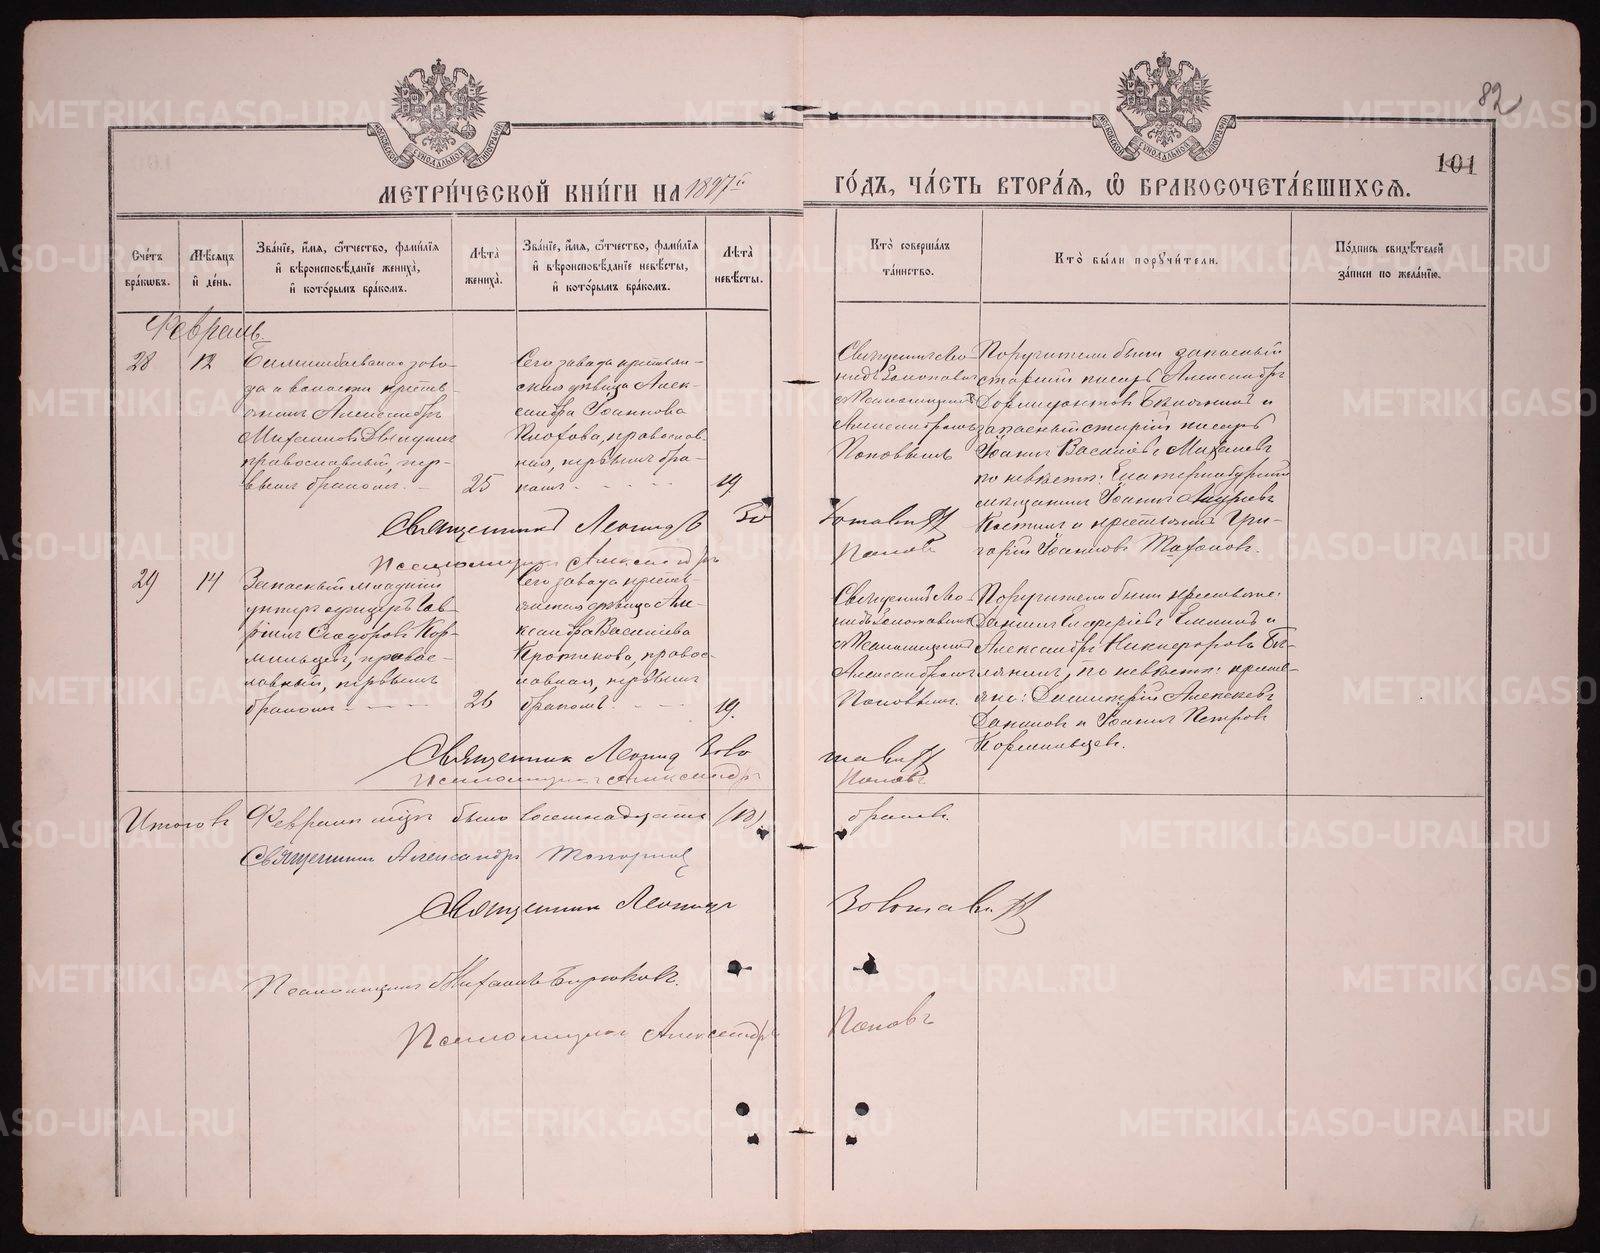 82
101
МОСКОВСКОЙ СѴНОДАЛЬНОЙ ТИПОГРАФІИ
МОСКОВСКОЙ СѴНОДАЛЬНОЙ ТИПОГРАФІИ
МЕТРИ́ЧЕСКОЙ КНИ́ГИ НА 1897 й
ГО́ДЪ, ЧА́СТЬ ВТОРА́Ѧ, Ѽ БРАКОСОЧЕТА́ВШИХСѦ.
Сче́тъ бра́кѡвъ.
Мѣ́сяцъ и҆ де́нь.
Зва́нїе, и҆́мя, ѻ҆́тчество, фами́лїя и҆ вѣроисповѣ́данїе жениха̀, и҆ кото́рымъ бра́комъ.
Лѣ́та жениха̀.
Зва́нїе, и҆́мя, ѻ҆́тчество, фами́лїя и҆ вѣроисповѣ́данїе невѣ́сты, и҆ кото́рымъ бра́комъ.
Лѣ́та невѣ́сты.
Кто̀ соверша́лъ та́инство.
Кто̀ бы́ли порꙋчи́тели.
По́дпись свидѣ́телей за́писи по жела́нїю.
Февраль.
28
12
Билимбаевскаго заво-
да и волости кресть-
янинъ Александръ
Михаиловъ
православный, пер-
вымъ бракомъ.
25
Сего завода крестьян-
ская дѣвица Алек-
сандра Іоаннова
Плохова, православ-
ная, первымъ бра-
комъ
19
Священникъ Лео-
нидъ
Псаломщикомъ
Александромъ
Поповымъ
Поручители были запасный
старшій писарь Александръ
Дормидонтовъ и
запасный старшій писарь
Іоаннъ Василіевъ Михалевъ
по невѣстѣ: Екатеринбургскій
мѣщанинъ Іоаннъ Андреевъ
Костинъ и крестьянинъ Гри-
горій Іоанновъ
Священникъ Леонидъ Золотавинъ
Псаломщикъ Александръ Поповъ
29
14
Запасный младшій
унтеръ офицеръ Гав-
ріилъ Сидоровъ Кор-
мильцевъ, правос-
лавный, первымъ
бракомъ
26
Сего завода кресть-
янская дѣвица Але-
ксандра Василіева
Кротикова, правос-
лавная, первымъ
бракомъ.
19.
Священникъ Лео-
нидъ Золотавинъ
Псаломщикомъ
Александромъ
Поповымъ.
Поручители были крестьяне:
Даніилъ Елиннъ и
Александръ Никифоровъ
по невѣстѣ: кресть-
яне: Димитрій Алексѣевъ
Даниловъ и Іоаннъ Петровъ
Кормильцевъ.
Священникъ Леонидъ Золотавинъ
Псаломщикъ Александръ Поповъ
Итого въ Февралѣ мцѣ было восемнадцать (18) браковъ.
Священникъ Александръ Топорковъ
Священникъ Леонидъ Золотавинъ
Псаломщикъ Михаилъ Бирюковъ.
Псаломщикъ Александръ Поповъ
METRIKI.GASO-URAL.RU